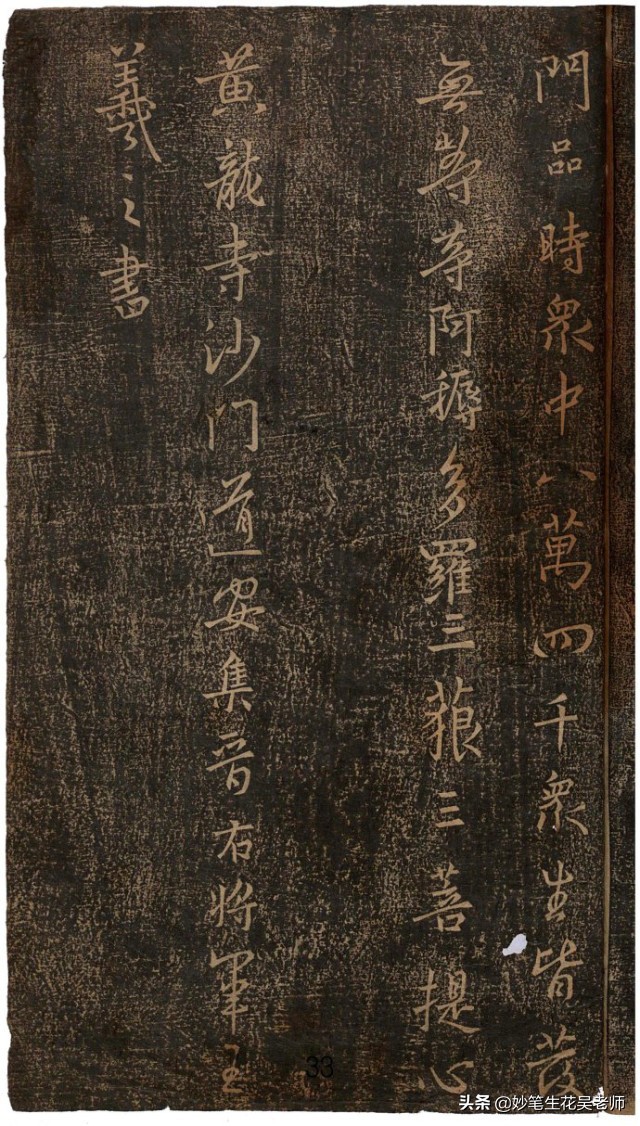 門品時眾中八萬四千眾生皆發
無等等阿耨多羅三藐三菩提心
黃龍寺沙門道安集晉右將軍王
羲之書
33
头条 @妙笔生花吴老师